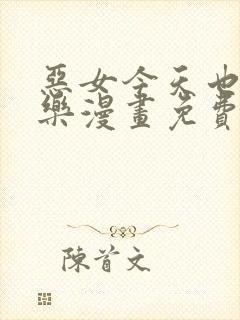 惡女今天也
樂漫畫免費
陳首文